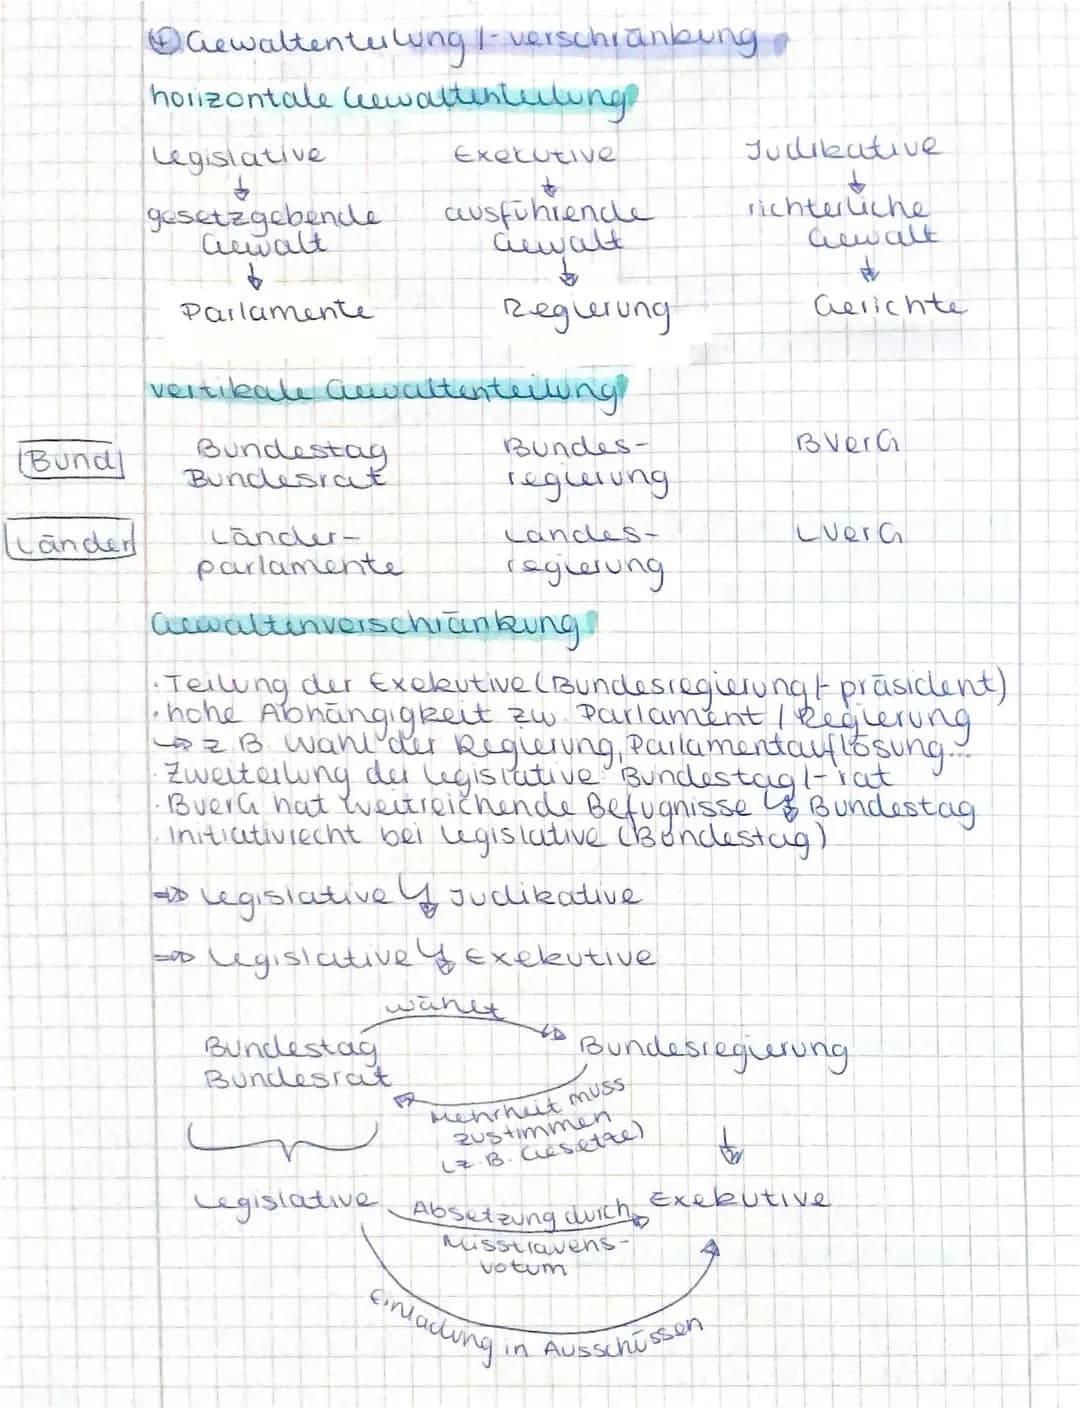 ④ Gewaltenteilung /-verschränkung
horizontale Gewaltenteilung
Legislative Exekutive Judikative
↓ ↓ ↓
gesetzgebende ausführende richterliche
Gewalt Gewalt Gewalt
↓ ↓ ↓
Parlamente Regierung Gerichte
vertikale Gewaltenteilung
Bund Bundestag Bundes- BVerG
Bundesrat regierung
Länder Länder- Landes- LVerG
parlamente regierung
Gewaltenverschränkung
· Teilung der Exekutive (Bundesregierung/-präsident)
· hohe Abhängigkeit zw. Parlament / Regierung
↳ z.B. Wahl der Regierung, Parlamentauflösung...
· Zweiteilung der Legislative: Bundestag/-rat
· BVerG hat weitreichende Befugnisse ↯ Bundestag
· Initiativrecht bei Legislative (Bundestag)
⇒ Legislative ↯ Judikative
⇒ Legislative ↯ Exekutive
wählt
Bundestag Bundesregierung
Bundesrat
Mehrheit muss
zustimmen
(z.B. Gesetze)
Legislative Absetzung durch Exekutive
Misstrauens-
votum
Einladung in Ausschüssen